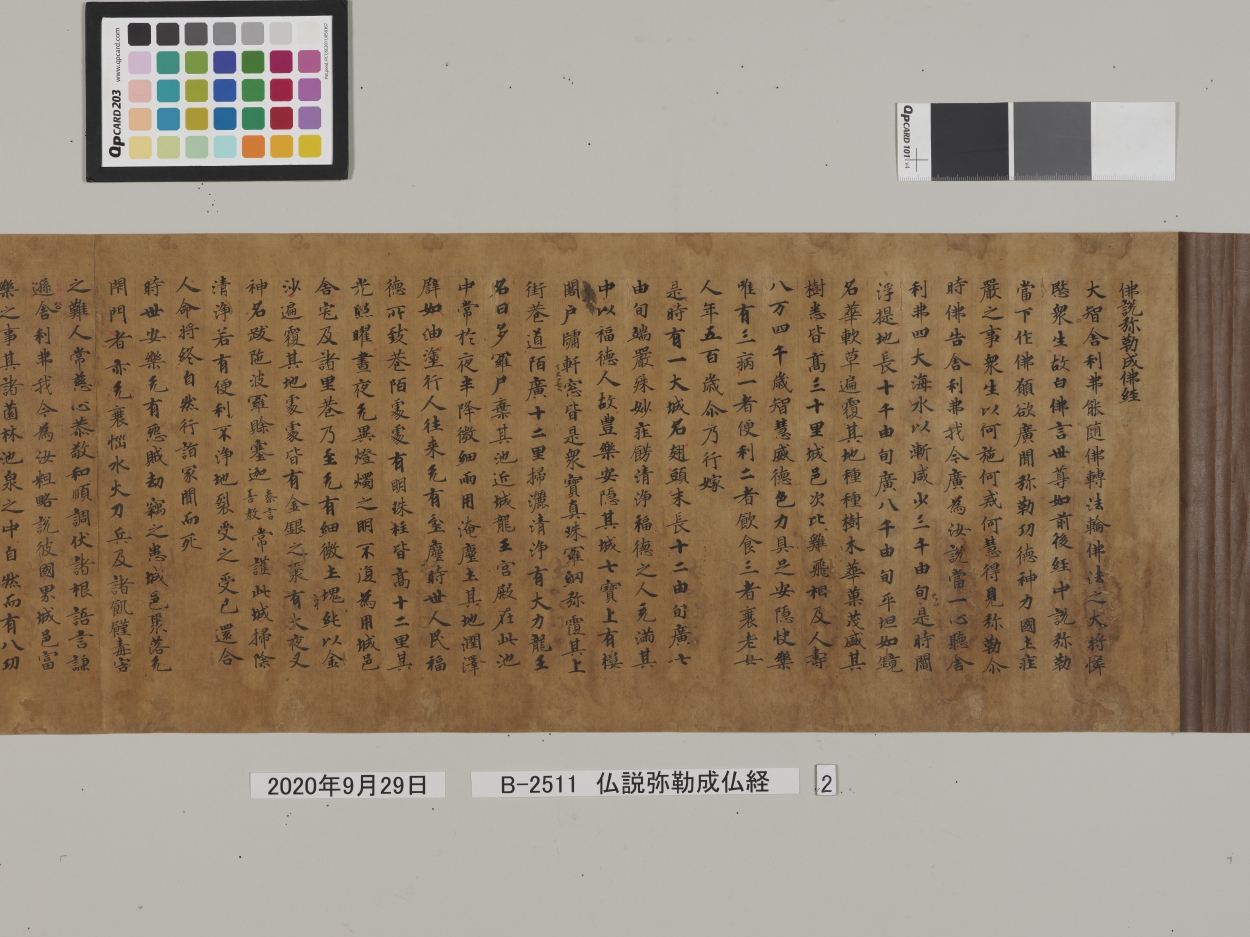 佛說弥勒成佛經
大智舍利弗能随佛轉法輪佛法之大將憐
愍衆生故白佛言世尊如前後経中説弥勒
當下作佛願欲廣聞弥勒功德神力國土莊
嚴之事衆生以何施何戒何慧得見弥勒尒
時佛告舍利弗我今廣為汝說當一心聽舍
利弗四大海水以漸咸少三千由旬是時閻
浮提地長十千由旬廣八千由旬平坦如鏡
名華軟草遍覆其地種種樹木華菓茂盛其
樹悉皆高三十里城邑次比雞飛相及人壽
八万四千歳智慧威德色力具足安隠快樂
唯有三病一者便利二者飲食三者衰老女
人年五百歳尒乃行嫁
是時有一大城名翅頭末長十二由旬廣七
由旬端嚴殊妙莊嚴清浄福德之人充滿其
中以福德人故豊樂安隠其城七寶上有樓
閣戸牖軒窓皆是衆寶真珠羅網弥覆其上
街巷道陌廣十二里掃灑清浄有大力龍王
名曰多羅尸棄其池近城龍王宮殿在此池
中常於夜半降微細雨用淹塵土其地潤澤
譬如油塗行人往来无有塵時世人民福
德所致巷陌處處有明珠柱皆高十二里其
光照曜晝夜无異燈燭之明不復為用城邑
舍宅及諸里巷乃至无有細微土塊純以金
沙遍覆其地處處皆有金銀之聚有大夜叉
神名跋陁波羅賖塞迦秦言善教常護此城掃除
清浄若有便利不浄地裂受之受已還合
人命将終自然行詣冢間而死
時世安樂无有怨賊劫竊之患城邑聚落无
閇門者亦无衰惱水火刀兵及諸飢饉毒害
之難人常慈心恭敬和順調伏諸根語言謙
遜舍利弗我今為汝粗略說彼國界城邑富
樂之事其諸薗林池泉之中自然而有八功
QpCARD 203
www.qpcard.com
QpCARD 101
2020年9月29日
B-2511 仏説弥勒成仏経
2